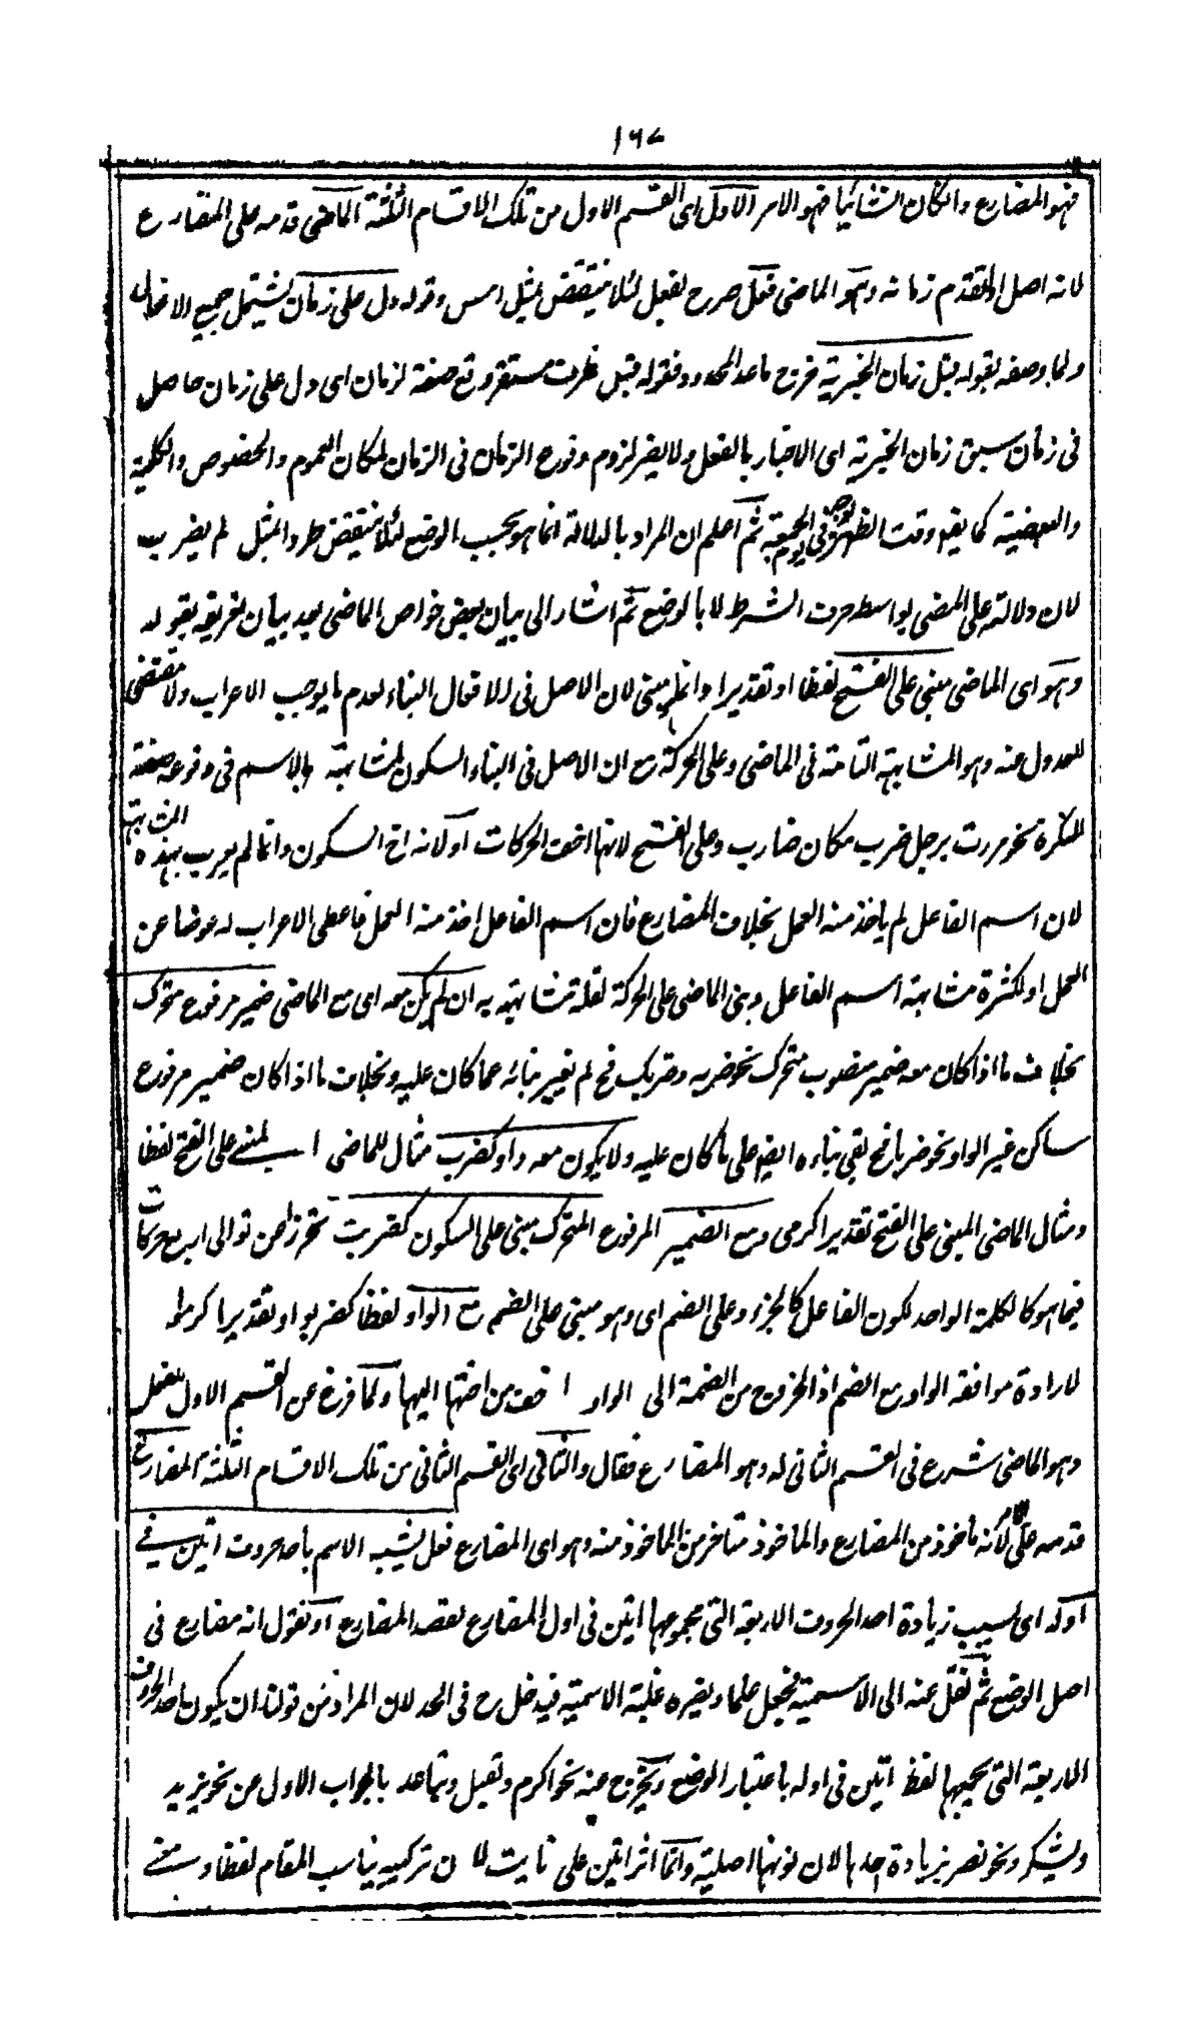 ١٦٧
فهو المضارع وان كان انشائيا فهو الامر الاول اى القسم الاول من تلك الاقسام الثلثة الماضى قدمه على المضارع
لانه اصل او لتقدم زمانه وهو الماضى فعل صرح بفعل لئلا ينتقض بمثل امس وقوله دل على زمان يشتمل جميع الافعال
ولما وصفه بقوله قبل زمان الخبرية خرج ما عدا المحدود فقوله قبل ظرف مستقر وقع صفة لزمان اى دل على زمان حاصل
فى زمان سبق زمان الخبرية اى الاخبار بالفعل ولا يضر لزوم وقوع الزمان فى الزمان لمكان العموم والخصوص والكلية
والبعضية كما يقم وقت الظهر فى يوم الجمعة ثم اعلم ان المراد بالدلالة انما هو بحسب الوضع لئلا ينتقض طردا لمثل لم يضرب
لان دلالته على المضى بواسطة حرف الشرط لا بالوضع ثم اشار الى بيان بعض خواص الماضى بعد بيان تعريفه بقوله
وهو اى الماضى مبنى على الفتح لفظا او تقديرا وانما بنى لان الاصل فى الافعال البناء لعدم ما يوجب الاعراب ولا مقتضى
للعدول عنه وهو المشابهة التامة فى الماضى وعلى الحركة مع ان الاصل فى البناء السكون لمشابهته بالاسم فى وقوعه صفة
للنكرة نحو مررت برجل ضرب مكان ضارب وعلى الفتح لانها اخف الحركات او لانه اخ السكون وانما لم يعرب بهذه المشابهة
لان اسم الفاعل لم ياخذ منه العمل بخلاف المضارع فان اسم الفاعل اخذ منه العمل فاعطى الاعراب له عوضا عن
العمل او لكثرة مشابهته اسم الفاعل وبنى الماضى على الحركة لقلة مشابهته به ان لم يكن معه اى مع الماضى ضمير مرفوع متحرك
بخلاف ما اذا كان معه ضمير منصوب متحرك نحو ضربه وضربك فح لم تغير بنائه عما كان عليه وبخلاف ما اذا كان ضمير مرفوع
ساكن غير الواو نحو ضربا فح بقى بناءه ايضم على ما كان عليه ولا يكون معه واو كضرب مثال للماضى المبنى على الفتح لفظا
ومثال الماضى المبنى على الفتح تقديرا كرمى ومع الضمير المرفوع المتحرك مبنى على السكون كضربت تحرزا عن توالى اربع حركات
فيما هو كالكلمة الواحد لكون الفاعل كالجزء وعلى الضم اى وهو مبنى على الضم مع الواو لفظا كضربوا وتقديرا كرموا
لارادة موافقة الواو مع الضم اذ الخروج من الضمة الى الواو اخف من اختها اليها ولما فرغ عن القسم الاول للفعل
وهو الماضى شرع فى القسم الثانى له وهو المضارع فقال والثانى اى القسم الثانى من تلك الاقسام الثلثة المضارع
قدمه على الامر لانه ماخوذ من المضارع والماخوذ متاخر من الماخوذ منه وهو اى المضارع فعل يشبه الاسم باحد حروف اتين فى
اوله اى بسبب زيادة احد الحروف الاربعة التى مجموعها اتين فى اول المضارع لقصد المضارع او نقول انه مضارع فى
اصل الوضع ثم نقل عنه الى الاسمية فجعل علما ويضره غلبة الاسمية فيدخل ح فى الحد لان المراد من قولنا ان يكون باحد الحروف
الاربعة التى يجمعها لفظ اتين فى اوله باعتبار الوضع ويخرج عنه نحو اكرم وتقبل وتباعد بالجواب الاول عن نحو يزيد
ويشكر ونحو نصر بزيادة احدها لان نونها اصلية وانما اثر اتين على نايت لان تركيبه يناسب المقام لفظا ومعنى